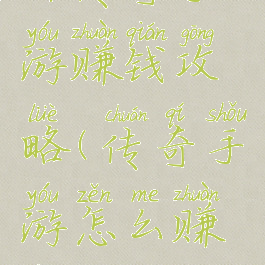 yóu zhuàn qián gōng
游赚钱攻
lüè chuán qí shǒu
略(传奇手
yóu zěn me zhuàn
游怎么赚